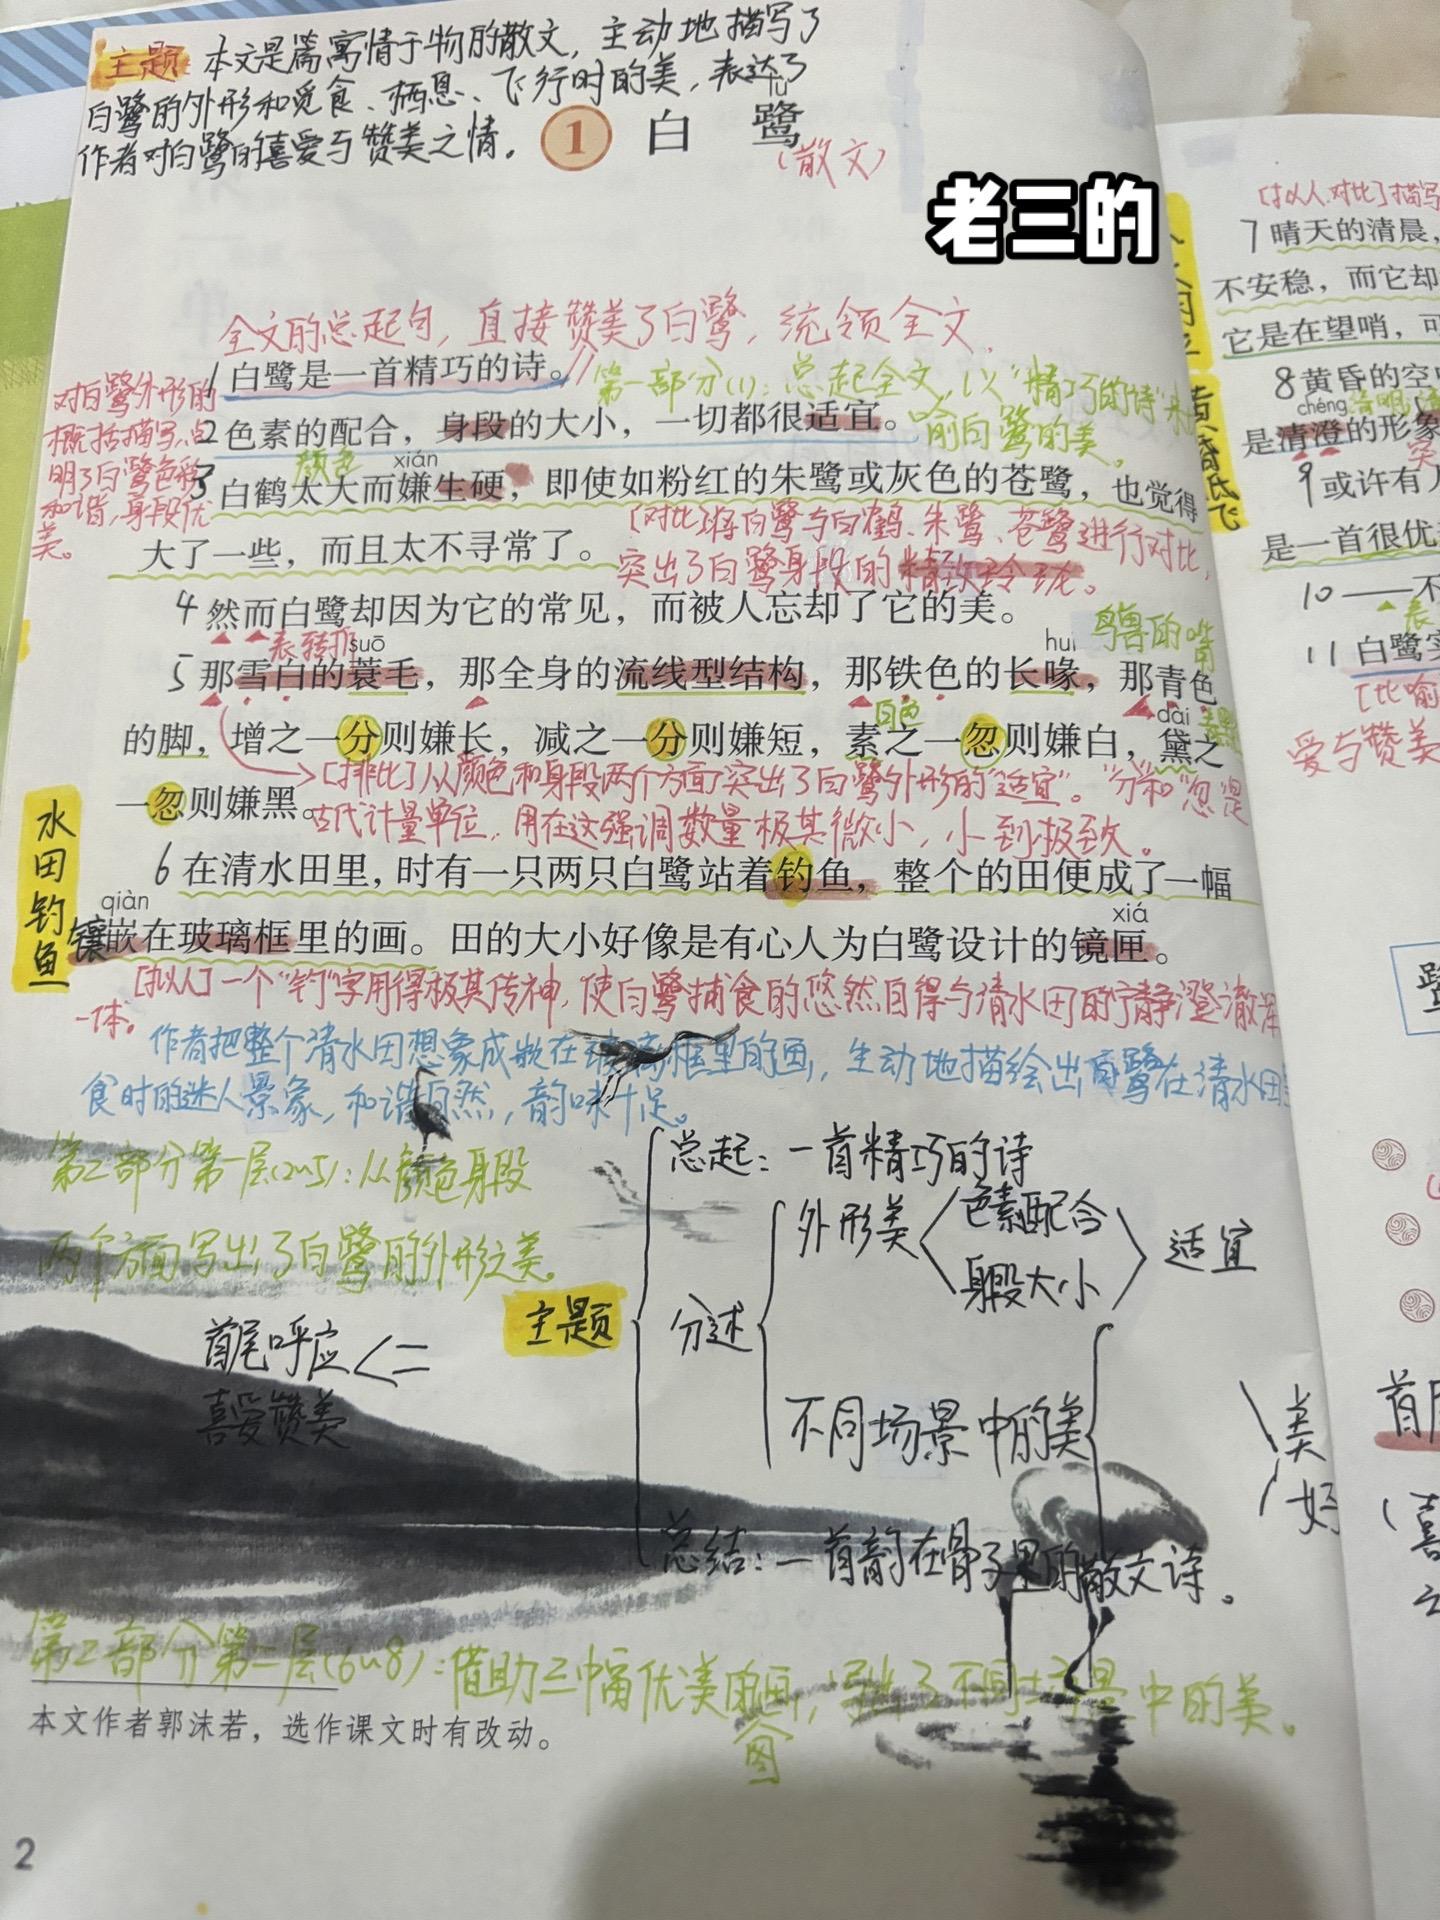 主题 本文是篇寓情于物的散文，主动地描写了
白鹭的外形和觅食、栖息、飞行时的美，表达了
作者对白鹭的喜爱与赞美之情。
lù
1 白鹭
（散文）
老三的
全文的总起句，直接赞美了白鹭，统领全文。
1 白鹭是一首精巧的诗。//
第一部分(1)：总起全文，以“精巧的诗”来
喻白鹭的美。
对白鹭外形的
概括描写，点
明了白鹭色彩
和谐，身段优
美。
2 色素的配合，身段的大小，一切都很适宜。
颜色
xián
3 白鹤太大而嫌生硬，即使如粉红的朱鹭或灰色的苍鹭，也觉得
[对比]将白鹭与白鹤、朱鹭、苍鹭进行对比，
大了一些，而且太不寻常了。
突出了白鹭身段的精致玲珑。
4 然而白鹭却因为它的常见，而被人忘却了它的美。
表转折
suō
huì
鸟兽的嘴
5 那雪白的蓑毛，那全身的流线型结构，那铁色的长喙，那青色
白色
dài
的脚，增之一分则嫌长，减之一分则嫌短，素之一忽则嫌白，黛之
[排比]从颜色和身段两个方面突出了白鹭外形的“适宜”。“分”和“忽”是
一忽则嫌黑。
古代计量单位，用在这强调数量极其微小，小到极致。
水田钓鱼
6 在清水田里，时有一只两只白鹭站着钓鱼，整个的田便成了一幅
qiàn
xiá
镶嵌在玻璃框里的画。田的大小好像是有心人为白鹭设计的镜匣。
[拟人]一个“钓”字用得极其传神，使白鹭捕食的悠然自得与清水田的宁静澄澈浑
一体。
作者把整个清水田想象成嵌在玻璃框里的画，生动地描绘出白鹭在清水田
食时的迷人景象，和谐自然，韵味十足。
第二部分第一层(2~5)：从颜色身段
两个方面写出了白鹭的外形之美。
首尾呼应
喜爱赞美
主题
总起：一首精巧的诗
分述
外形美
色素配合
身段大小
适宜
不同场景中的美
美好
总结：一首韵在骨子里的散文诗。
第二部分第二层(6~8)：借助三幅优美的画，写出了不同场景中的美。
图
本文作者郭沫若，选作课文时有改动。
2
黄昏低飞
[拟人.对比]描写
7 晴天的清晨，
不安稳，而它却
它是在望哨，可
8 黄昏的空中
chéng
是清澄的形象
9 或许有人
是一首很优
10 ——不
表
11 白鹭实
[比喻
爱与赞美
鹭
首尾
(喜
之